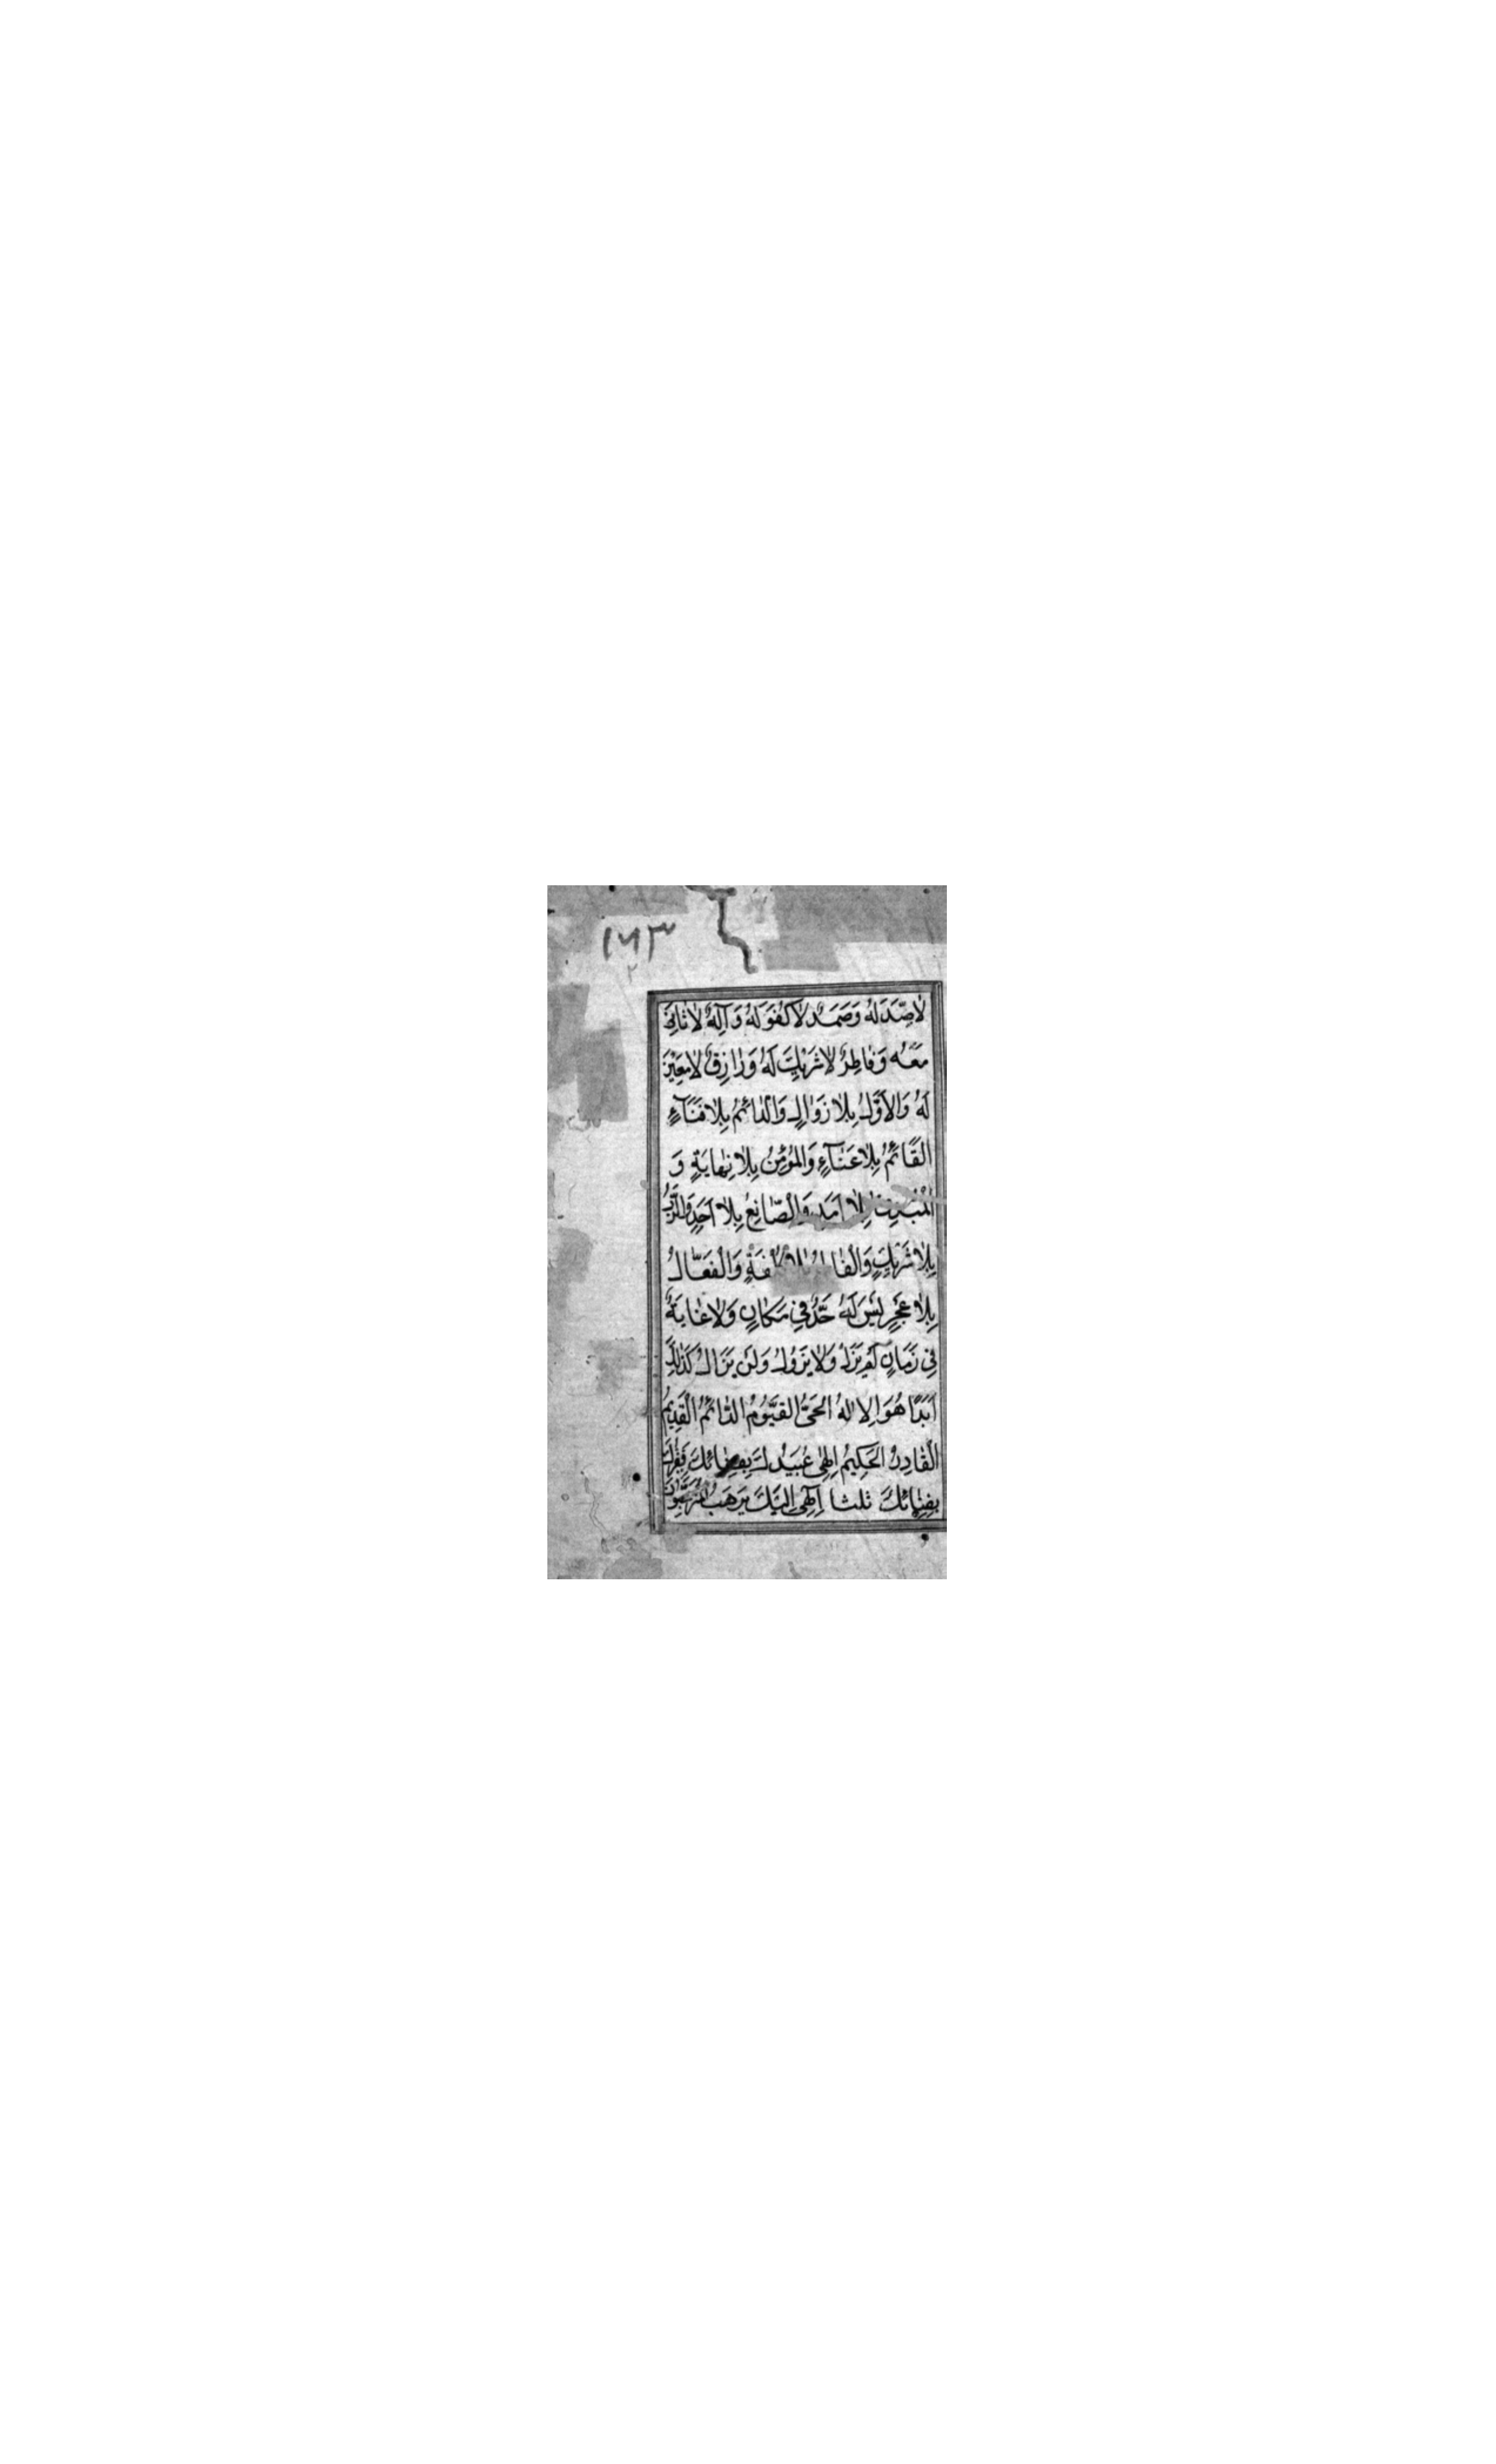 ۱۶۳
۲
لَا ضِدَّ لَهُ وَصَمَدٌ لَا كُفْوَ لَهُ وَاِلٰهٌ لَا ثَانِيَ
مَعَهُ وَفَاطِرٌ لَا شَرِيكَ لَهُ وَرَازِقٌ لَا مُعِينَ
لَهُ وَالْاَوَّلُ بِلَا زَوَالٍ وَالدَّائِمُ بِلَا فَنَآءٍ
الْقَائِمُ بِلَا عَنَآءٍ وَالْمُؤْمِنُ بِلَا نِهَايَةٍ وَ
بِلَا اَمَدٍ وَالصَّانِعُ بِلَا اَحَدٍ وَالرَّبُّ
بِلَا شَرِيكٍ وَالْفَعَّالُ
بِلَا عَجْزٍ لَيْسَ لَهُ حَدٌّ فِي مَكَانٍ وَلَا غَايَةٌ
فِي زَمَانٍ لَمْ يَزَلْ وَلَا يَزُولُ وَلَنْ يَزَالَ كَذٰلِكَ
اَبَدًا هُوَ الْحَيُّ الْقَيُّومُ الدَّائِمُ الْقَدِيمُ
الْقَادِرُ الْحَكِيمُ اِلٰهِي عُبَيْدُكَ بِفِنَائِكَ
بِفِنَائِكَ ثلثا اِلٰهِي اِلَيْكَ يَرْهَبُ الْمُتَرَهِّبُونَ